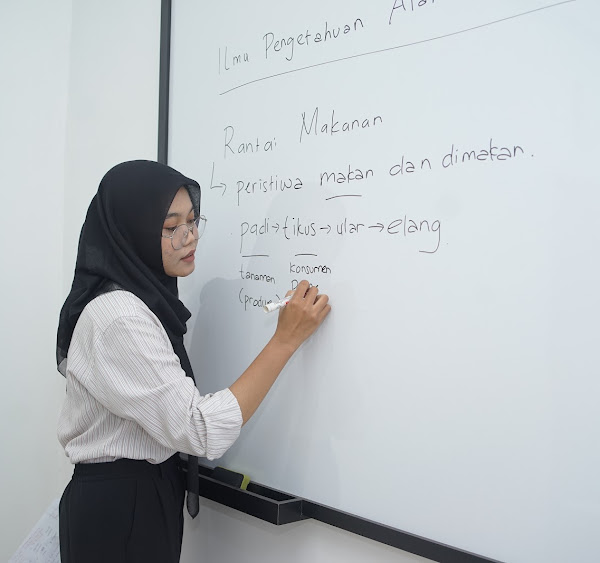 Ilmu Pengetahuan
Rantai Makanan
↳ peristiwa makan dan dimakan.
padi → tikus → ular → elang
tanaman konsumen